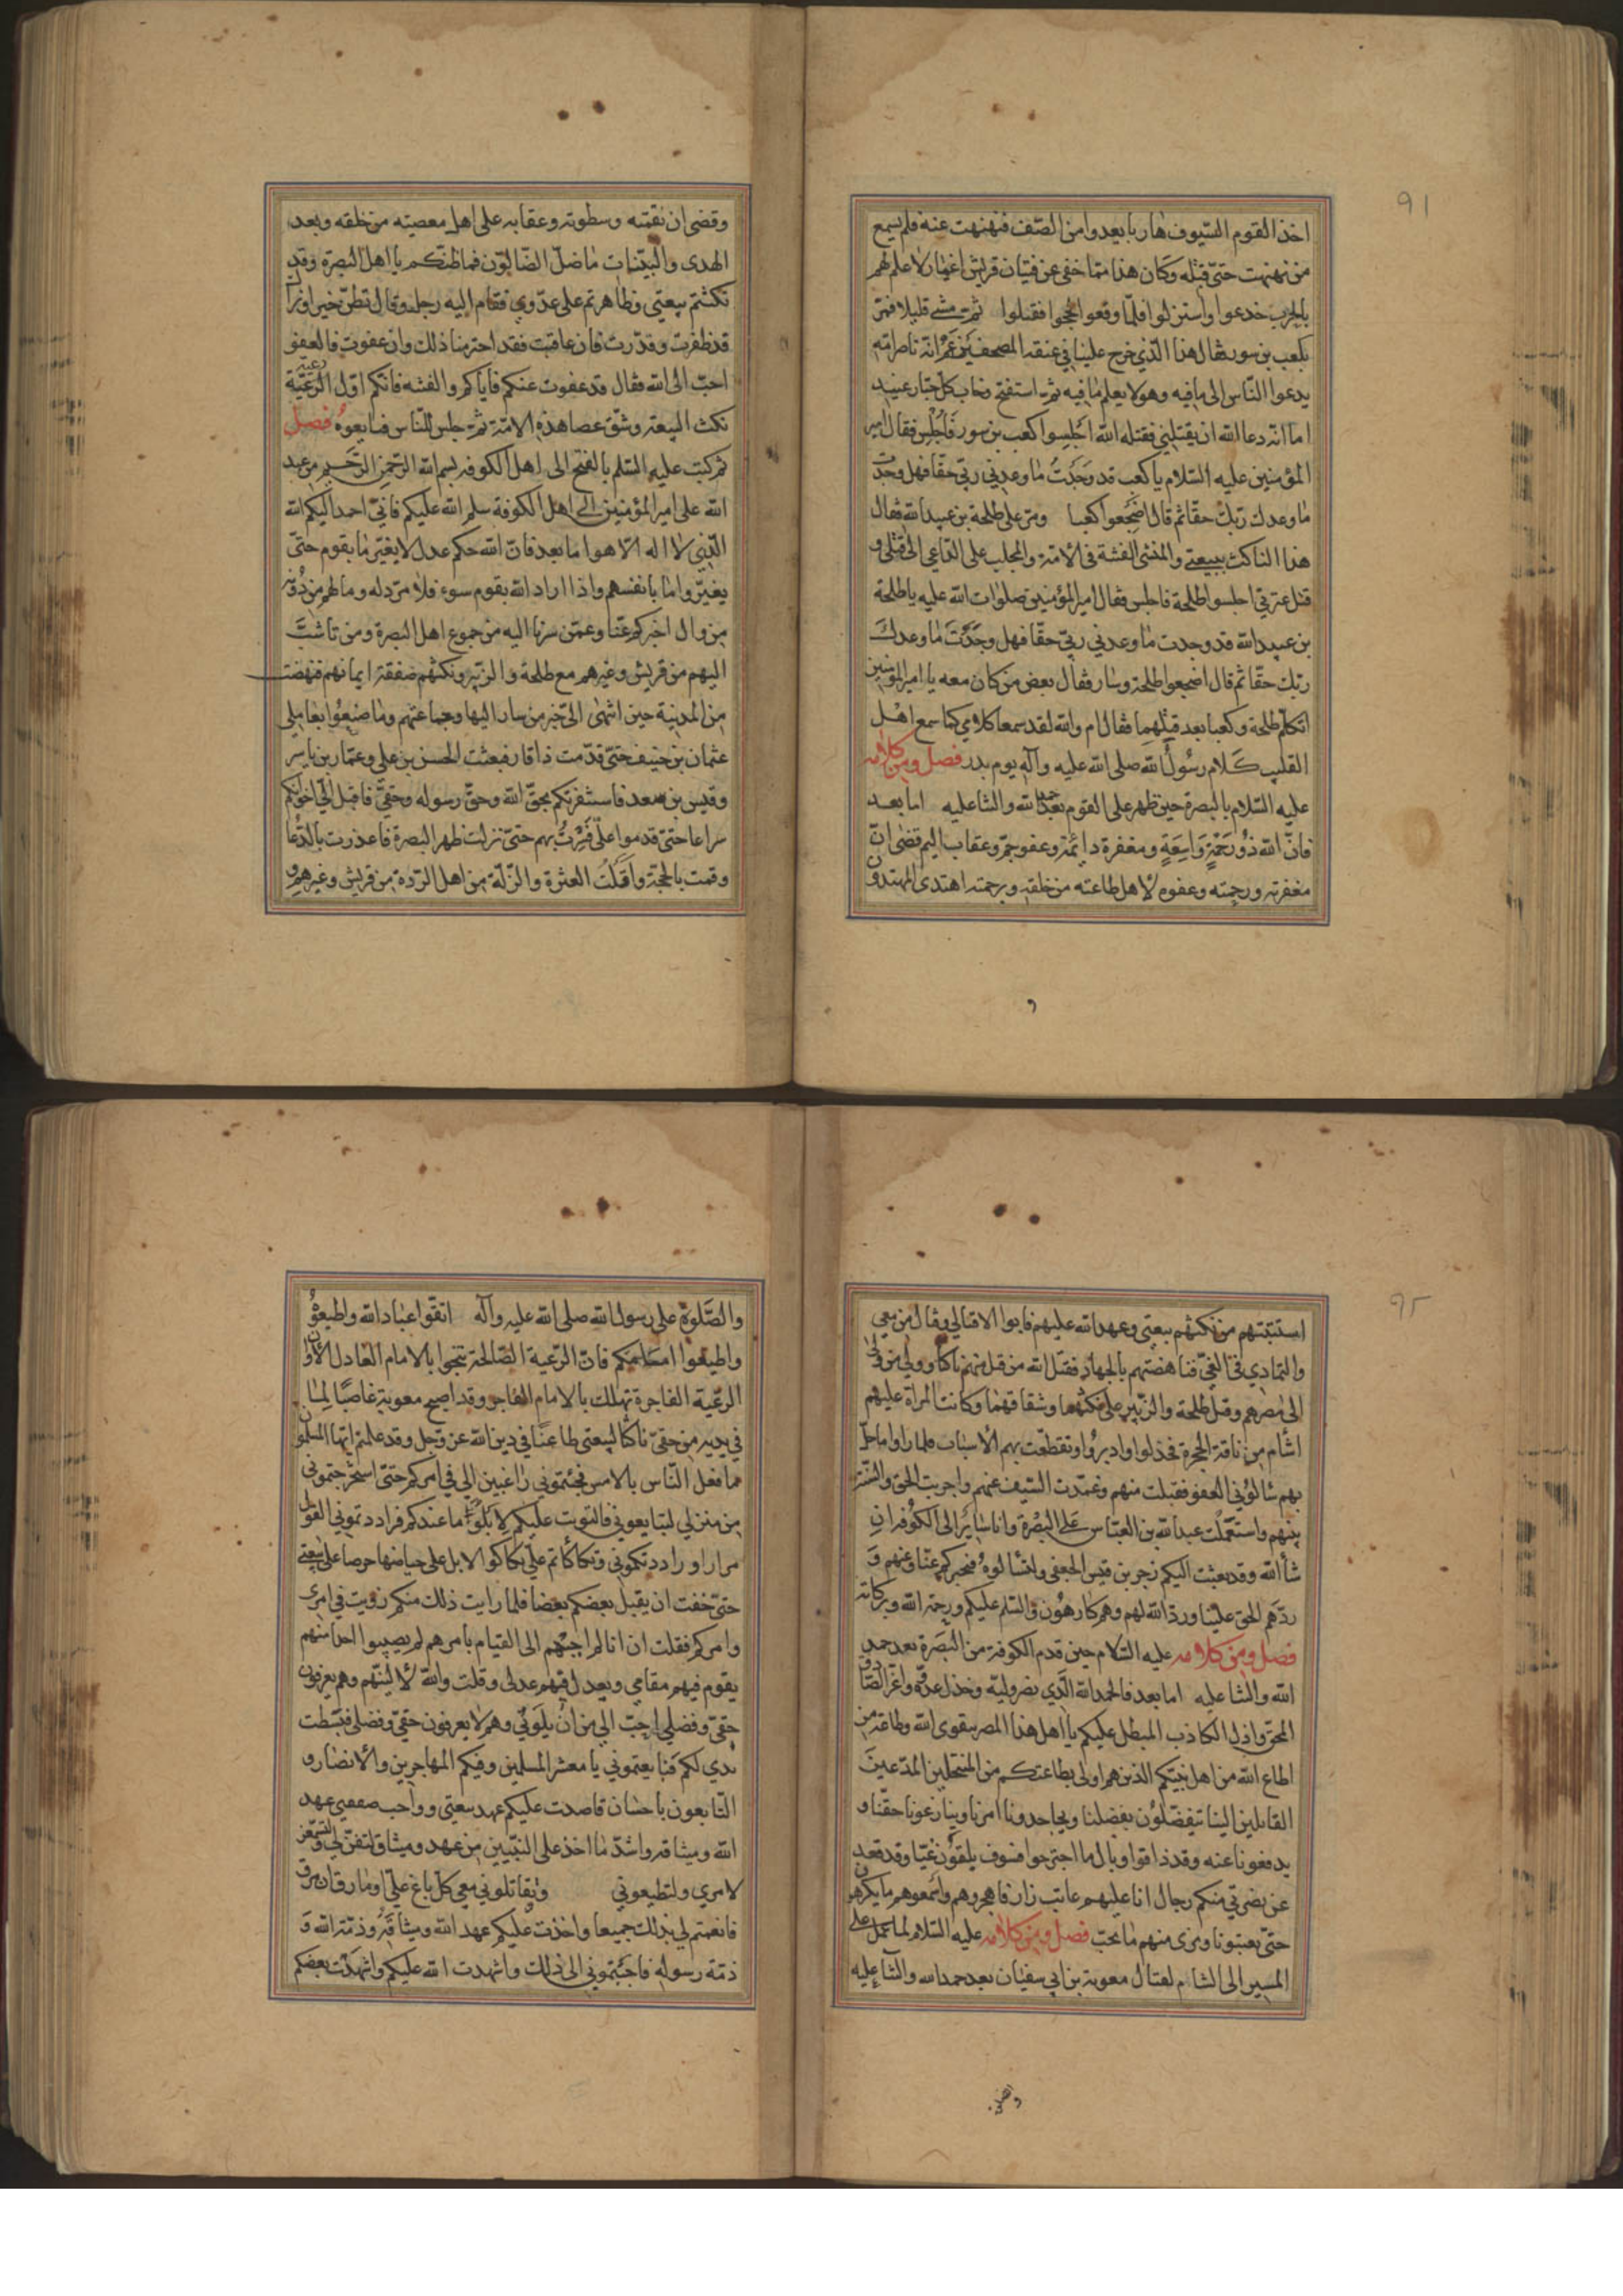 91
اخذ القوم السّيوف هاربا يعدوا من الصّف فنهنهت عنه فلم يسمع
من نهنهت حتّى قتله وكان هذا ممّا خفى عن فتيان قريش اغمار لا علم لهم
بالحرب خدعوا واستنزلوا فلمّا وقعوا لججوا فقتلوا ثمّ مشى قليلا فمرّ
بكعب بن سور فقال هذا الّذي خرج علينا في عنقه المصحف يزعم انّه ناصر امّه
يدعوا النّاس الى ما فيه وهو لا يعلم ما فيه ثمّ استفتح وخاب كلّ جبّار عنيد
اما انّه دعا الله ان يقتلني فقتله الله اجلسوا كعب بن سور فاجلس فقال امير
المؤمنين عليه السّلام يا كعب قد وجدت ما وعدني ربّي حقّا فهل وجدت
ما وعدك ربّك حقّا ثم قال اضجعوا كعبا ومرّ على طلحة بن عبيد الله فقال
هذا الناكث بيعتي والمنشئ الفتنة في الامّة والمجلب على الدّاعي الى قتلى و
قتل عترتي اجلسوا طلحة فاجلس فقال امير المؤمنين صلوات الله عليه يا طلحة
بن عبيد الله قد وجدت ما وعدني ربّي حقّا فهل وجدت ما وعدك
ربّك حقّا ثم قال اضجعوا طلحة وسار فقال بعض من كان معه يا امير المؤمنين
اتكلّم طلحة وكعبا بعد قتلهما فقال ام والله لقد سمعا كلامي كما سمع اهل
القليب كلام رسول الله صلى الله عليه وآله يوم بدر فصل ومن كلامه
عليه السّلام بالبصرة حين ظهر على القوم بعد حمد الله والثنا عليه اما بعد
فانّ الله ذو رحمة واسعة ومغفرة دائمة وعفو جمّ وعقاب اليم قضى انّ
مغفرته ورحمته وعفوه لاهل طاعته من خلقه وبرحمته اهتدى المهتدون
و
وقضى ان نقمته وسطوته وعقابه على اهل معصيته من خلقه وبعد
الهدى والبيّنات ما ضلّ الضّالّون فما ظنّكم يا اهل البصرة وقد
نكثتم بيعتي وظاهرتم على عدّوي فقام اليه رجل وقال نظنّ خيرا ونراك
قد ظفرت وقدّرت فان عاقبت فقد اجترمنا ذلك وان عفوت فالعفو
احبّ الى الله فقال قد عفوت عنكم فاياكم والفتنه فانّكم اوّل الرّعيّة رعيّة
نكث البيعة وشقّ عصا هذه الامّة ثمّ جلس للنّاس فبايعوه فصل
ثم كتب عليه السّلم بالفتح الى اهل الكوفه بسم الله الرّحمن الرّحيم من عبد
الله على امير المؤمنين الى اهل الكوفة سلم الله عليكم فانّي احمد اليكم الله
الّذي لا اله الّا هو اما بعد فانّ الله حكم عدل لا يغيّر ما بقوم حتّى
يغيّروا ما بانفسهم واذا اراد الله بقوم سوء فلا مردّ له وما لهم من دونه
من وال اخبركم عنّا وعمّن سرنا اليه من جموع اهل البصرة ومن تاشّب
اليهم من قريش وغيرهم مع طلحة والزّبير ونكثهم صفقة ايمانهم فنهضت
من المدينة حين انتهى الىّ خبر من سار اليها وجماعتهم وما صنعوا بعاملي
عثمان بن حنيف حتّى قدّمت ذا قار فبعثت الحسن بن على وعمّار بن ياسر
وقيس بن سعد فاستنفرتكم بحقّ الله وحقّ رسوله وحقّي فاقبل اليّ اخوانكم
سراعا حتّى قدموا علىّ فسرت بهم حتّى نزلت ظهر البصرة فاعذرت بالدّعا
وقمت بالحجّة واقلت العثرة والزّلّة من اهل الرّدة من قريش وغيرهم و
استتبتهم من نكثهم بيعتي وعهد الله عليهم فابوا الا قتالي وقتال من معي
والتمادي في الغيّ فناهضتهم بالجهاد فقتل الله من قتل منهم ناكثا وولى من ولى
الى مصرهم وقتل طلحة والزّبير على نكثهما وشقاقهما وكانت المراة عليهم
اشأم من ناقة الحجرة فخذلوا وادبروا وتقطّعت بهم الاسباب فلما راوا ما حلّ
بهم سالوني العفو فقبلت منهم وغمّدت السّيف عنهم واجريت الحق والسّنّة
بينهم واستعملت عبد الله بن العبّاس على البصرة وانا ساير الى الكوفة ان
شأ الله وقد بعثت اليكم زحر بن قيس الجعفي ولتسألوه فيخبركم عنّا وعنهم و
ردّهم الحق علينا وردّ الله لهم وهم كارهون والسّلم عليكم ورحمة الله وبركاته
فصل ومن كلامه عليه السّلام حين قدم الكوفة من البصرة بعد حمد
الله والثنا عليه اما بعد فالحمد لله الّذي نصر وليّه وخذل عدوّه واعزّ الصّادق
المحق واذل الكاذب المبطل عليكم يا اهل هذا المصر بتقوى الله وطاعة من
اطاع الله من اهل بيت نبيّكم الذين هم اولى بطاعتكم من المنتحلين المدّعين
القائلين الينا يتفضّلون بفضلنا ويجاحدونا امرنا وينازعونا حقّنا و
يدفعونا عنه وقد ذاقوا وبال ما اجترحوا فسوف يلقون غيّا وقد قعد
عن نصرتي منكم رجال انا عليهم عاتب زار فاهجروهم واسمعوهم ما يكرهون
حتّى يعتبونا ونرى منهم ما نحبّ فصل ومن كلامه عليه السّلام لما عمل على
المسير الى الشام لقتال معوية بن ابي سفيان بعد حمد الله والثّنا عليه
والصّلوة على رسول الله صلى الله عليه وآله اتقّوا عباد الله واطيعوه
واطيعوا امامكم فانّ الرّعية الصّالحة تنجوا بالامام العادل الا وان
الرّعيّة الفاجرة تهلك بالامام الفاجر وقد اصبح معوية غاصبًا لما
في يديه من حقىّ ناكثا لبيعتي طاعنًا في دين الله عز وجل وقد علمتم ايّها المسلمون
ما فعل النّاس بالامس فجئتموني راغبين الي في امركم حتّى استخرجتموني
من منزلي لتبايعوني فالتويت عليكم لابلو ما عندكم فراددتموني القول
مرارا وراددتكموني وتكاكأتم علىّ تكاكؤ الابل على حياضها حرصا على بيعتي
حتّى خفت ان يقتل بعضكم بعضا فلما رايت ذلك منكم رويت في امرى
وامركم فقلت ان انا لم اجبهم الى القيام بامرهم لم يصيبوا احدا منهم
يقوم فيهم مقامي ويعدل فيهم عدلى وقلت والله لالينّهم وهم يعرفون
حقىّ وفضلى احبّ الي من ان يلوني وهم لا يعرفون حقىّ وفضلى فبسّطت
يدي لكم فبايعتموني يا معشر المسلمين وفيكم المهاجرين والانصار و
التّابعون باحسان فاخذت عليكم عهد بيعتي وواجب صفقتي عهد
الله وميثاقه واشدّ ما اخذ على النّبيّين من عهد وميثاق لتفنّ لي ولتسمعنّ
لامري ولتطيعوني وتقاتلوني معي كلّ باغ علىّ او مارق ان مرق
فانعمتم لي بذلك جميعا واخذت عليكم عهد الله وميثاقه وذمّة الله و
ذمّة رسوله فاجبتموني الى ذلك واشهدت الله عليكم واشهدت بعضكم